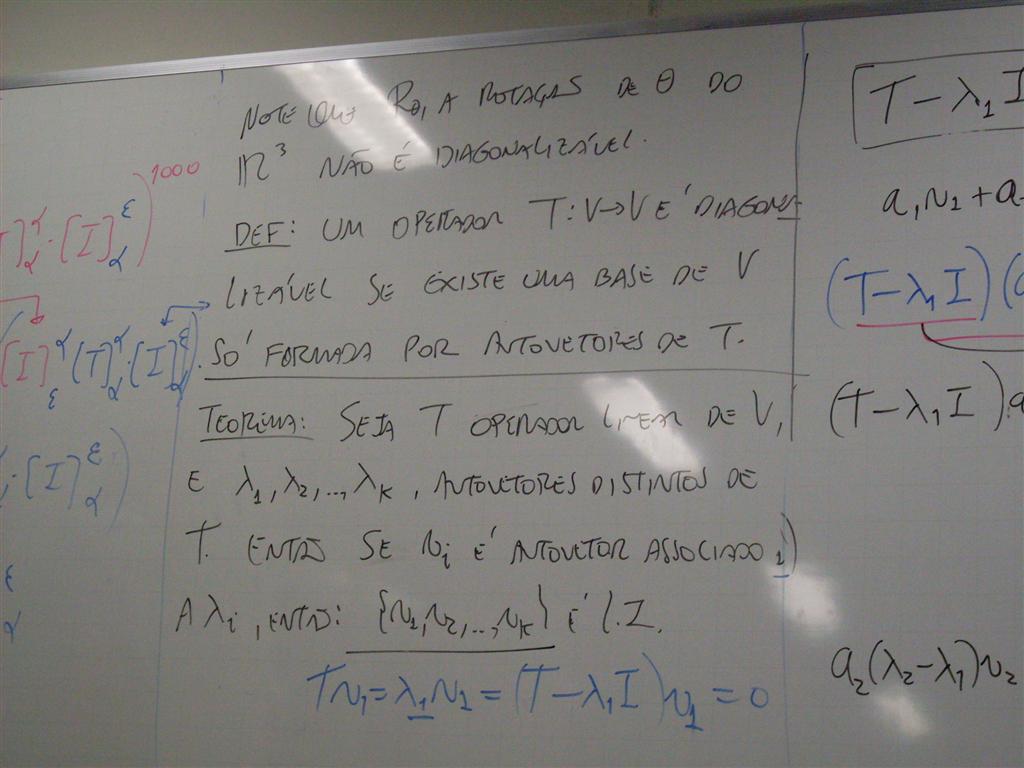 )^1000
]_α^α · [I]_α^ε
[I]_ε^α (T)_α^α · [I]_α^ε
· [I]_α^ε
ε
α
NOTE QUE Rθ, A ROTAÇÃO DE θ DO
IR³ NÃO É DIAGONALIZÁVEL.
DEF: UM OPERADOR T: V→V É DIAGONA-
LIZÁVEL SE EXISTE UMA BASE DE V
SÓ FORMADA POR AUTOVETORES DE T.
TEOREMA: SEJA T OPERADOR LINEAR DE V,
E λ₁, λ₂, ..., λₖ, AUTOVETORES DISTINTOS DE
T. ENTÃO SE vᵢ É AUTOVETOR ASSOCIADO
A λᵢ, ENTÃO: {v₁, v₂, ..., vₖ} É L.I.
Tv₁ = λ₁v₁ = (T - λ₁I)v₁ = 0
T - λ₁I
a₁v₁ + a
(T - λ₁I)(
(T - λ₁I).a
a₂(λ₂ - λ₁)v₂